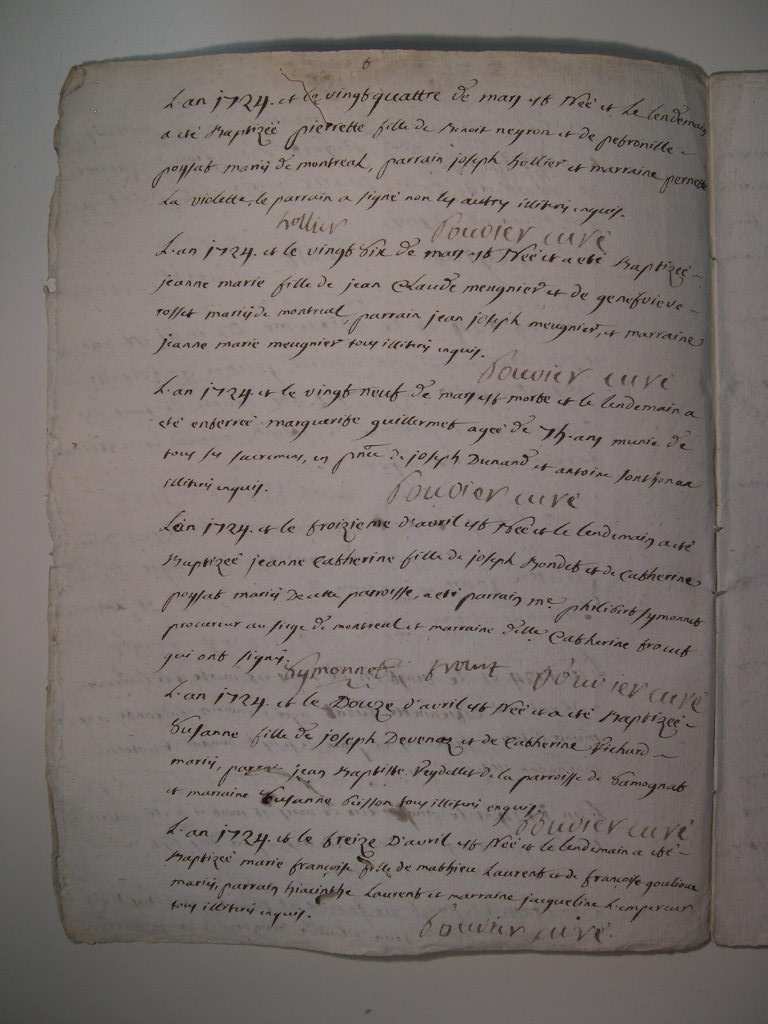 6
L'an 1724. et le vingt quattre de mars est née et le lendemain
a eté Baptizeé pierrette fille de Benoit neyron et de petronille
poysat mariés de montreal, parrain joseph hollier et marraine pernette
La violette, le parrain a signé non les autres illitérés enquis.
hollier Bouvier curé
L'an 1724. et le vingt six de mars est née et a eté Baptizeé
jeanne marie fille de jean Claude meugnier et de genefvieve
rosset mariés de montreal, parrain jean joseph meugnier, et marraine
jeanne marie meugnier tous illitérés enquis.
Bouvier curé
L'an 1724. et le vingt neuf de mars est morte et le lendemain a
eté enterreé marguerite guillermet ageé de 75. ans munie de
tous ses sacremens, en pnce de joseph Dunand et antoine
illitérés enquis.
Bouvier curé
L'an 1724. et le troizieme d'avril est née et le lendemain a eté
Baptizeé jeanne Catherine fille de joseph Bondet et de Catherine
poysat mariés De cette parroisse, a eté parrain me. philibert symonnet
procureur au siege de montreal et marraine dlle Catherine frout
qui ont signés.
Symonnet frout Bouvier curé
L'an 1724. et le Douze d'avril est née et a eté Baptizeé
Susanne fille de joseph Devenaz et de Catherine Richard
mariés, parrain jean Baptiste Veydellet de la parroisse de Samognat
et marraine Susanne buisson tous illitérés enquis.
Bouvier curé
L'an 1724. et le treize D'avril est née et le lendemain a eté
Baptizeé marie françoise fille de mathieu Laurent et de françoise
mariés, parrain hiacinthe Laurent et marraine jacqueline L'empereur
tous illitérés enquis.
Bouvier curé.